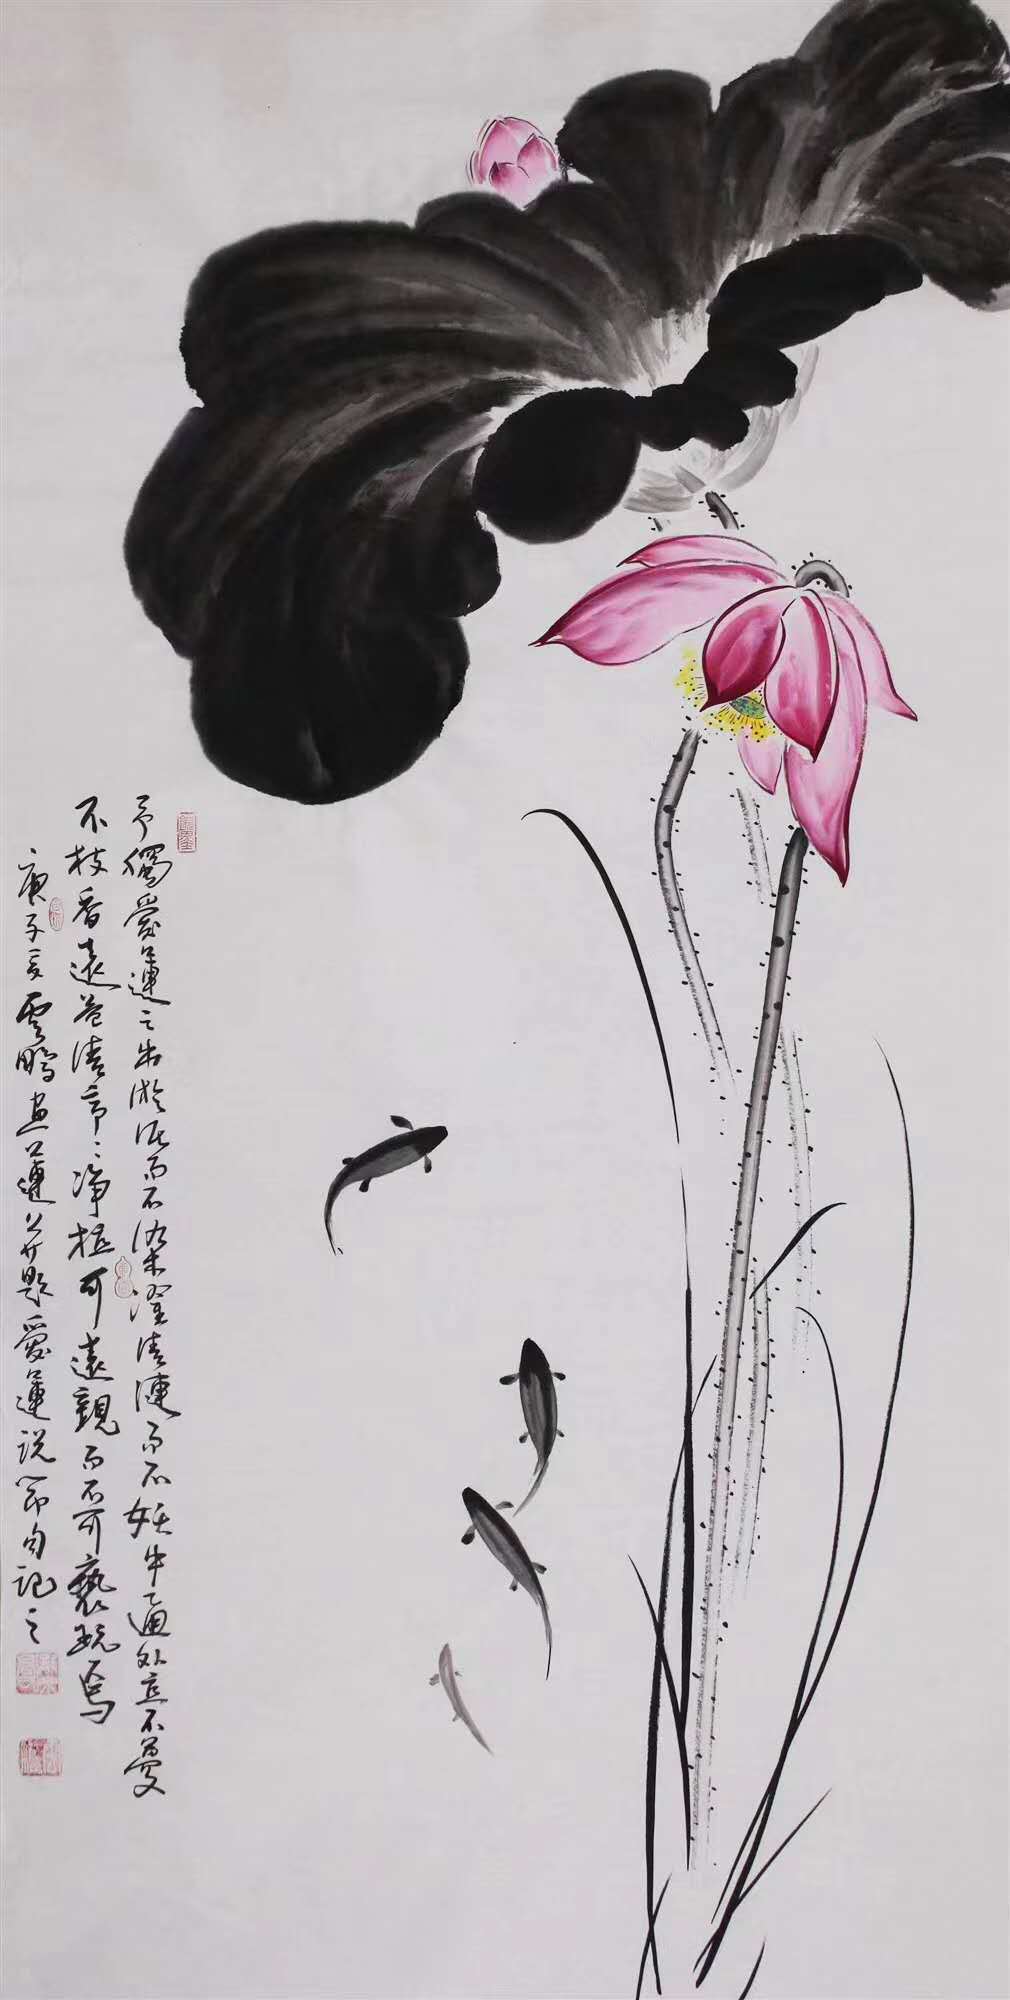 予獨愛蓮之出淤泥而不染濯清漣而不妖中通外直不蔓
不枝香遠益清亭〻淨植可遠觀而不可褻玩焉
庚子夏雲鵬畫蓮并題愛蓮説節句記之